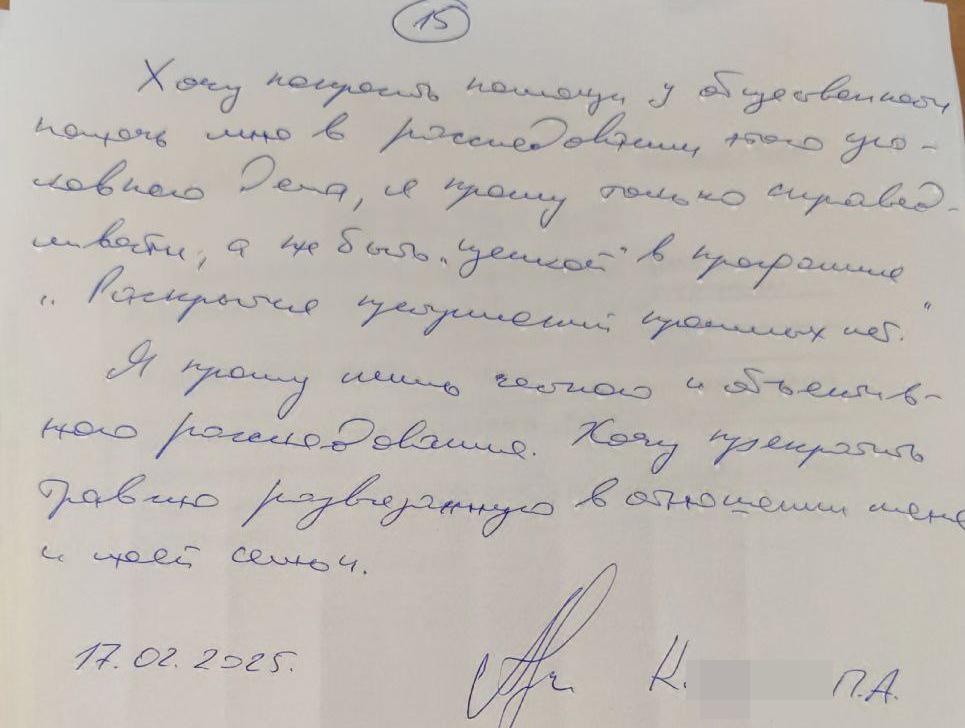 15
Хочу попросить помощи у общественности
помочь мне в расследовании этого уго-
ловного дела, я прошу только справед-
ливости, а не быть „целкой" в программе
„Раскрытие преступлений прошлых лет."
Я прошу лишь честного и объектив-
ного расследования. Хочу прекратить
травлю развязанную в отношении меня
и моей семьи.
17.02.2025.
К. П.А.